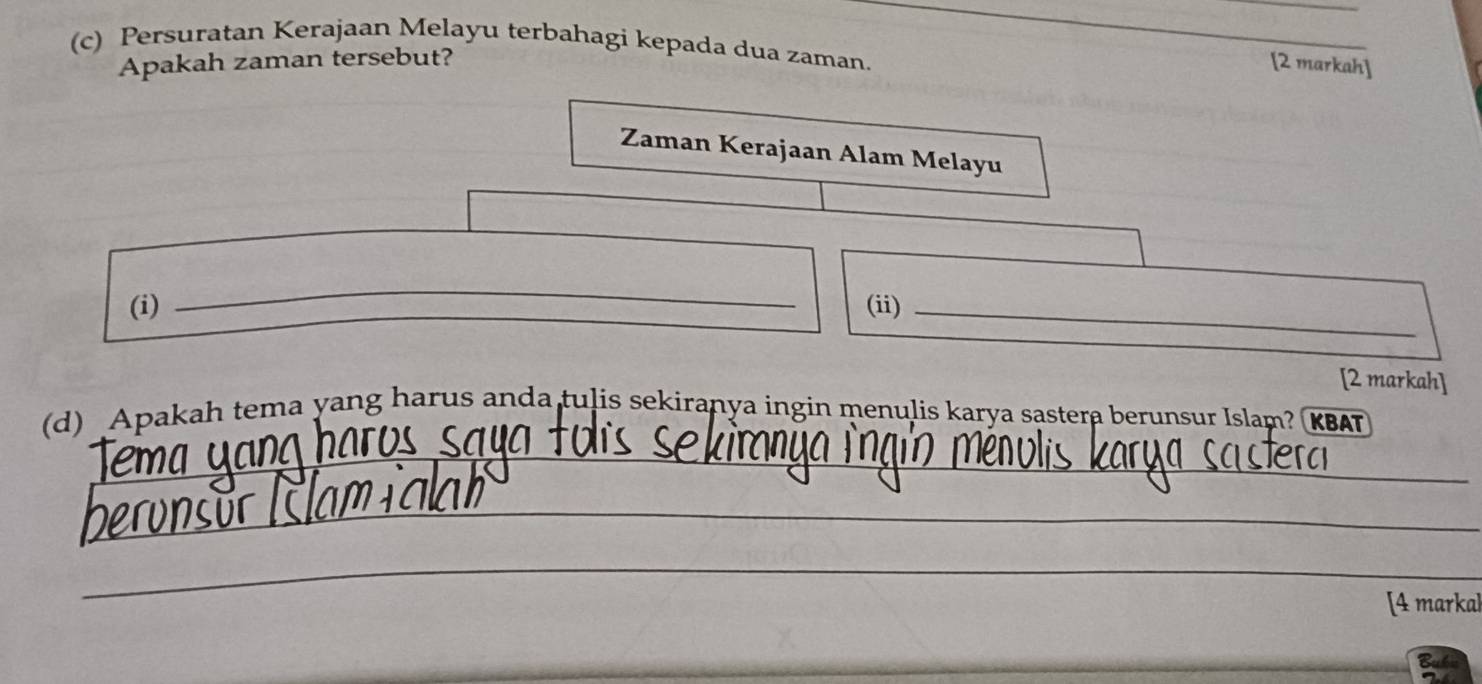 (c) Persuratan Kerajaan Melayu terbahagi kepada dua zaman.
Apakah zaman tersebut?
[2 markah]
Zaman Kerajaan Alam Melayu
(i)
(ii)
[2 markah]
(d) Apakah tema yang harus anda tulis sekiranya ingin menulis karya sastera berunsur Islam? KBAT
Tema yang harus saya tulis sekiranya ingin menulis karya sastera
berunsur Islam ialah
[4 markah
Buku